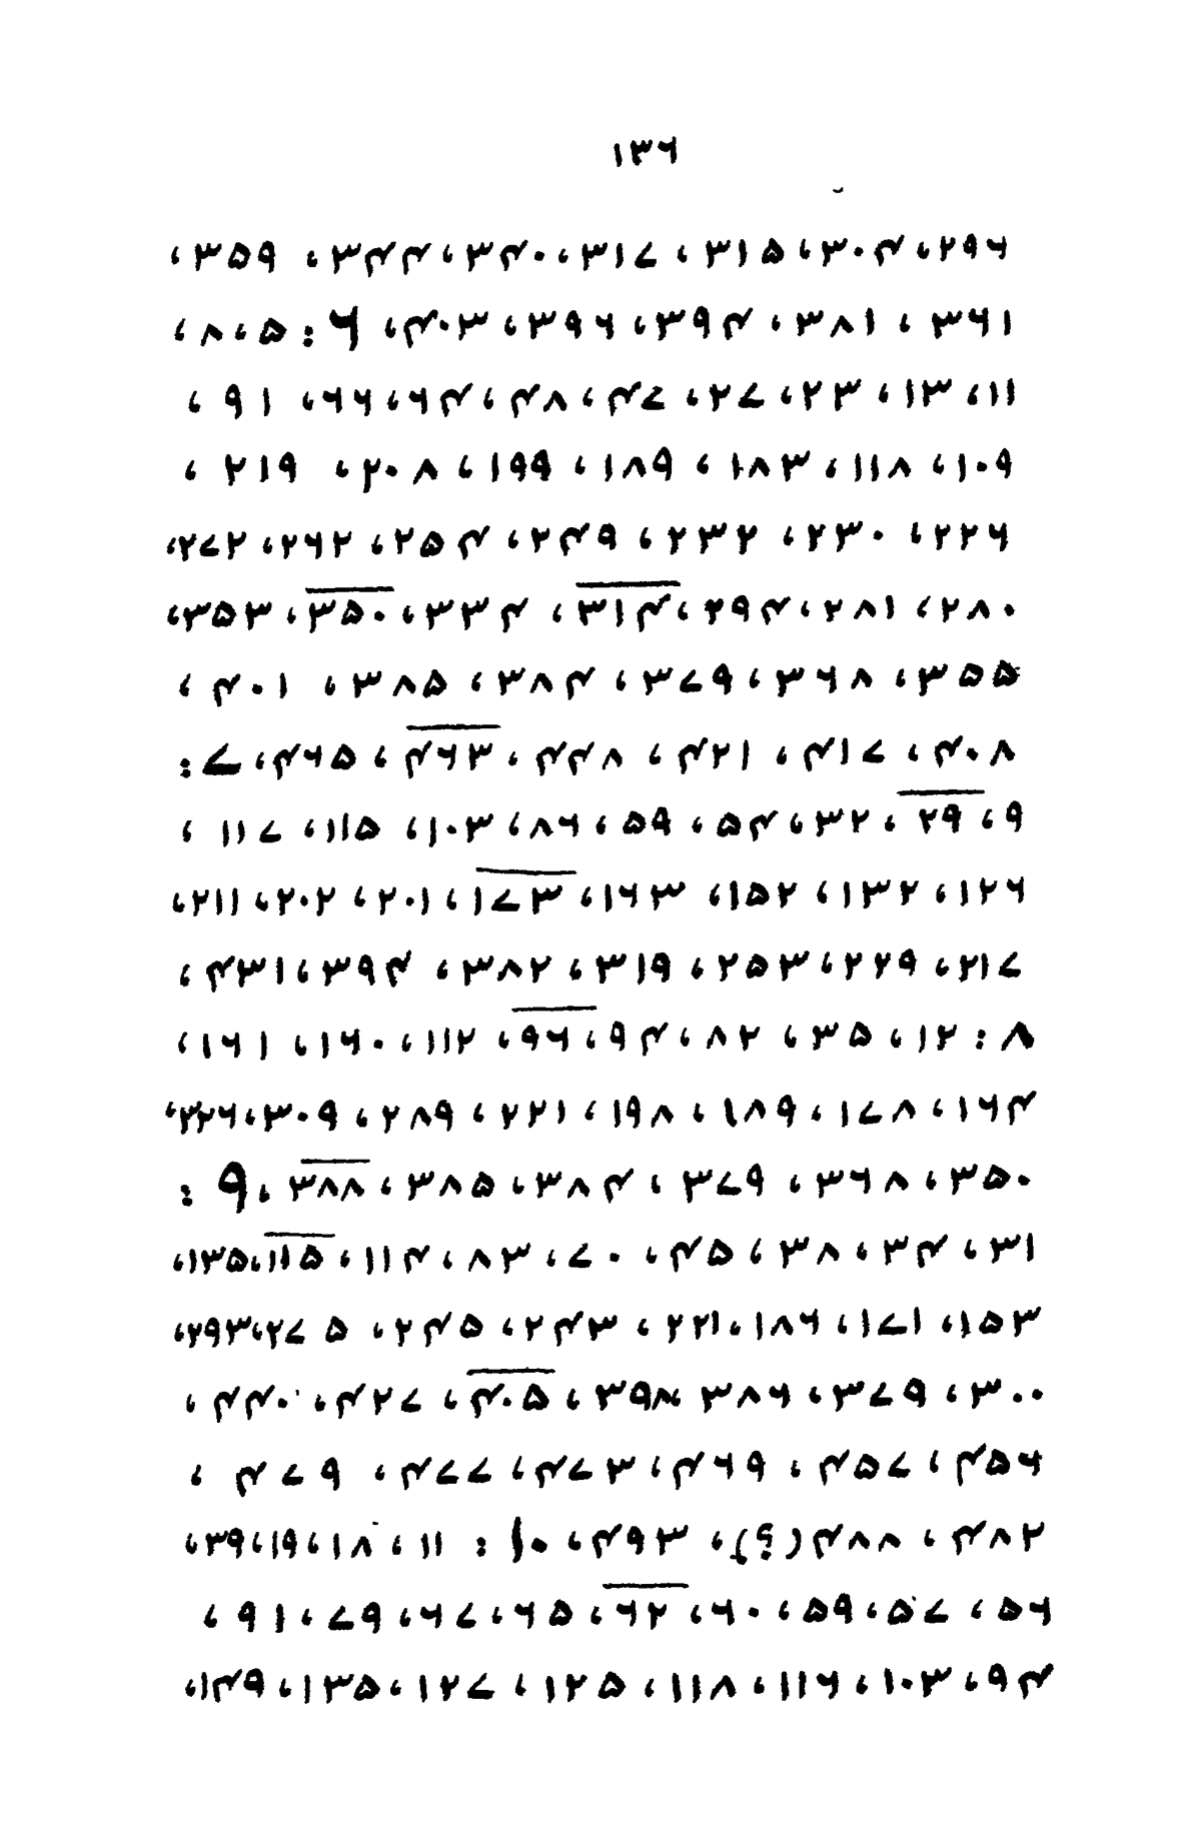 ۱۳۶
۲۹۶، ۳۰۴، ۳۱۵، ۳۱۷، ۳۴۰، ۳۴۴، ۳۵۹،
۳۶۱، ۳۸۱، ۳۹۴، ۳۹۶، ۴۰۳، ۶: ۵، ۸،
۱۱، ۱۳، ۲۳، ۲۷، ۴۷، ۴۸، ۴۶، ۶۶، ۹۱،
۱۰۹، ۱۱۸، ۱۸۳، ۱۸۹، ۱۹۹، ۲۰۸، ۲۱۹،
۲۲۶، ۲۳۰، ۲۳۲، ۲۴۹، ۲۵۴، ۲۶۲، ۲۷۲،
۲۸۰، ۲۸۱، ۲۹۴، ۳۱۴، ۳۳۴، ۳۵۰، ۳۵۳،
۳۵۵، ۳۶۸، ۳۷۹، ۳۸۴، ۳۸۵، ۴۰۱،
۴۰۸، ۴۱۷، ۴۲۱، ۴۴۸، ۴۶۳، ۴۶۵، ۷:
۹، ۲۹، ۳۲، ۵۴، ۵۹، ۸۶، ۱۰۳، ۱۱۵، ۱۱۷،
۱۲۶، ۱۳۲، ۱۵۲، ۱۶۳، ۱۷۳، ۲۰۱، ۲۰۲، ۲۱۱،
۲۱۷، ۲۲۹، ۲۵۳، ۳۱۹، ۳۸۲، ۳۹۴، ۴۳۱،
۸: ۱۲، ۳۵، ۸۲، ۹۴، ۹۶، ۱۱۲، ۱۶۰، ۱۶۱،
۱۶۴، ۱۷۸، ۱۸۹، ۱۹۸، ۲۲۱، ۲۸۹، ۳۰۹، ۳۲۶،
۳۵۰، ۳۶۸، ۳۷۹، ۳۸۴، ۳۸۵، ۳۸۸، ۹:
۳۱، ۳۴، ۳۸، ۴۵، ۷۰، ۸۳، ۱۱۴، ۱۱۵، ۱۳۵،
۱۵۳، ۱۷۱، ۱۸۶، ۲۲۱، ۲۴۳، ۲۴۵، ۲۷۵، ۲۹۳،
۳۰۰، ۳۷۹، ۳۸۶ ۳۹۸، ۴۰۵، ۴۲۷، ۴۴۰،
۴۵۶، ۴۵۷، ۴۶۹، ۴۷۳، ۴۷۷، ۴۷۹،
۴۸۲، ۴۸۸(؟)، ۴۹۳، ۱۰: ۱۱، ۱۸، ۱۹، ۳۹،
۵۶، ۵۷، ۵۹، ۶۰، ۶۲، ۶۵، ۶۷، ۷۹، ۹۱،
۹۴، ۱۰۳، ۱۱۶، ۱۱۸، ۱۲۵، ۱۲۷، ۱۳۵، ۱۴۹،